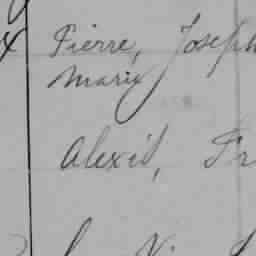 Pierre, Joseph
Marie
Alexis, Fr